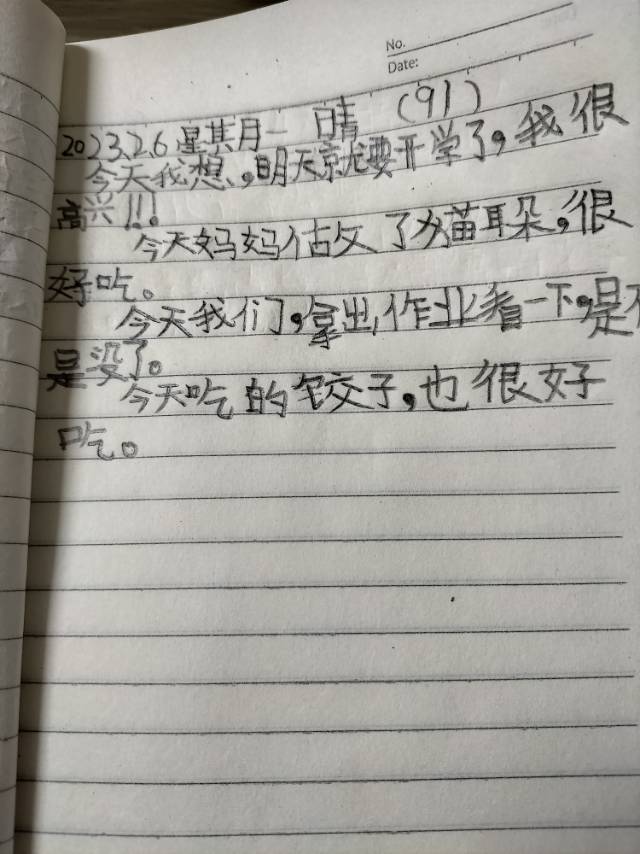 No.
Date:
2023.2.6 星其月一 晴 (91)
今天我想,明天就要开学了,我很
高兴!!!
今天妈妈估攵了为猫耳朵,很
好吃。
今天我们,拿出,作业看一下,是不
是没了。
今天吃的饺子,也很好
吃。